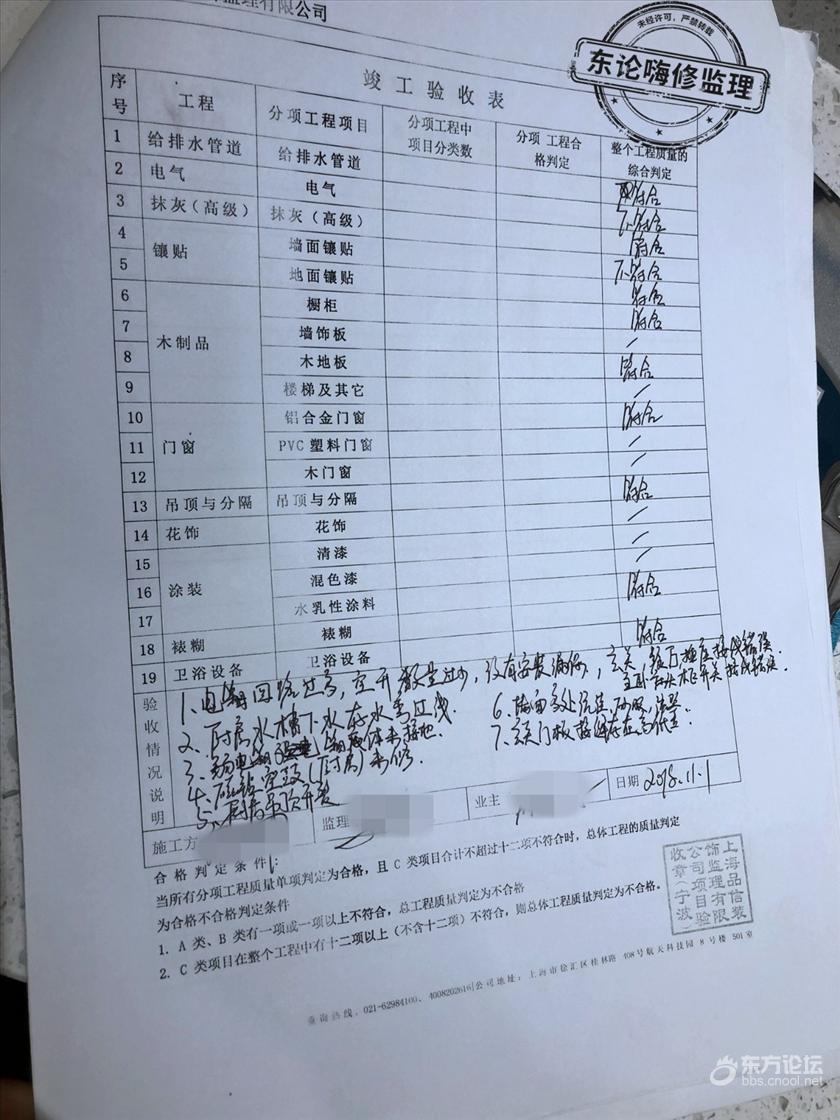 监理有限公司
未经许可，严禁转载
东论嗨修监理
竣工验收表
序号 工程 分项工程项目 分项工程中项目分类数 分项 工程合格判定 整个工程质量的综合判定
1 给排水管道 给排水管道 符合
2 电气 电气 不符合
3 抹灰（高级） 抹灰（高级） 符合
4 镶贴 墙面镶贴 不符合
5 地面镶贴 符合
6 木制品 橱柜 符合
7 墙饰板 /
8 木地板 符合
9 楼梯及其它 /
10 门窗 铝合金门窗 符合
11 PVC塑料门窗 /
12 木门窗 /
13 吊顶与分隔 吊顶与分隔 符合
14 花饰 花饰 /
15 涂装 清漆 /
16 混色漆
17 水乳性涂料 符合
18 裱糊 裱糊
19 卫浴设备 卫浴设备 符合
验收情况说明
1、回路过高，空开数量过少，没有安装漏保，玄关
2、厨房水槽下水存水弯过浅
3、箱体未接地
4、（厨房）未修
5、厨房吊顶开裂
6、墙面多处
7、门板接缝存在高低差
施工方 监理 业主 日期 2018.11.1
合格判定条件:
当所有分项工程质量单项判定为合格，且C类项目合计不超过十二项不符合时，总体工程的质量判定
为合格不合格判定条件
1. A类、B类有一项或一项以上不符合，总工程质量判定为不合格
2. C类项目在整个工程中有十二项以上（不含十二项）不符合，则总体工程质量判定为不合格。
上海品信装饰监理有限公司项目验收章（宁波）
查询热线：021-62984100、4008202616|公司地址：上海市徐汇区桂林路 408号航天科技园 8号楼 501室
东方论坛
bbs.cnool.net